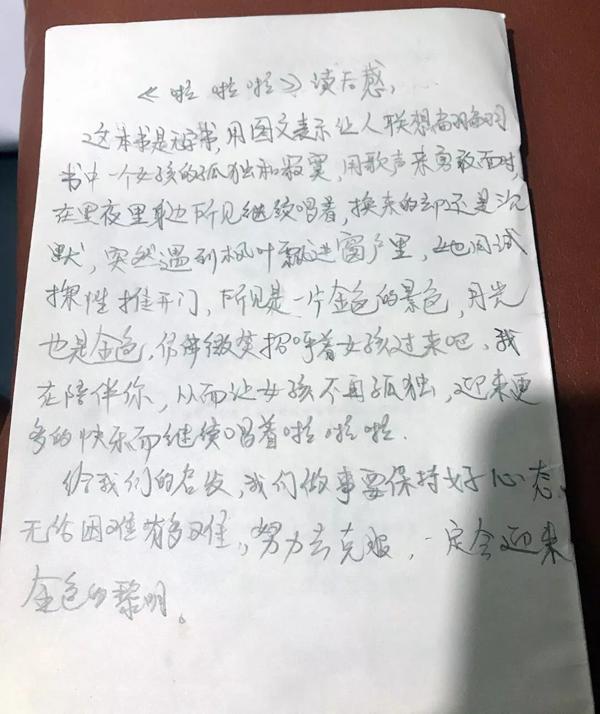 《啦啦啦》读后感，
这本书是无字书，用图文表示让人联想
书中一个女孩的孤独和寂寞，用歌声来勇敢面对，
在黑夜里身边所见继续唱着，换来的却还是沉
默，突然遇到枫叶飘进窗户里，她用试
探性推开门，所见是一片金色的景色，月光
也是金色，仿佛微笑招呼着女孩过来吧、我
在陪伴你，从而让女孩不再孤独，迎来更
多的快乐而继续唱着啦啦啦．
给我们的启发，我们做事要保持好心态、
无论困难有多难，努力去克服，一定会迎来
金色的黎明。